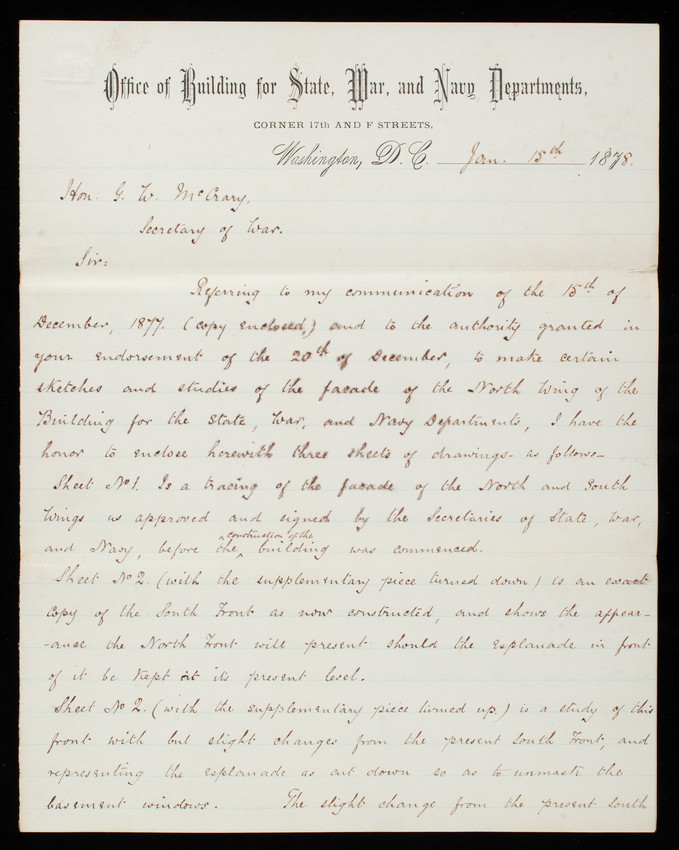 Office of Building for State, War, and Navy Departments,
CORNER 17th AND F STREETS,
Washington, D. C. Jan. 15th 1878.
Hon. G. W. McCrary,
Secretary of War.
Sir:
Referring to my communication of the 15th of
December, 1877. (copy enclosed,) and to the authority granted in
your endorsement of the 20th of December, to make certain
sketches and studies of the facade of the North Wing of the
Building for the State, War, and Navy Departments, I have the
honor to enclose herewith three sheets of drawings - as follows -
Sheet No 1. Is a tracing of the facade of the North and South
Wings as approved and signed by the Secretaries of State, War,
construction of the
and Navy, before the building was commenced.
Sheet No 2. (with the supplementary piece turned down) is an exact
copy of the South Front as now constructed, and shows the appear-
-ance the North Front will present should the esplanade in front
of it be kept at its present level.
Sheet No 2. (with the supplementary piece turned up.) is a study of this
front with but slight changes from the present South Front, and
representing the esplanade as cut down so as to unmask the
basement windows. The slight change from the present South